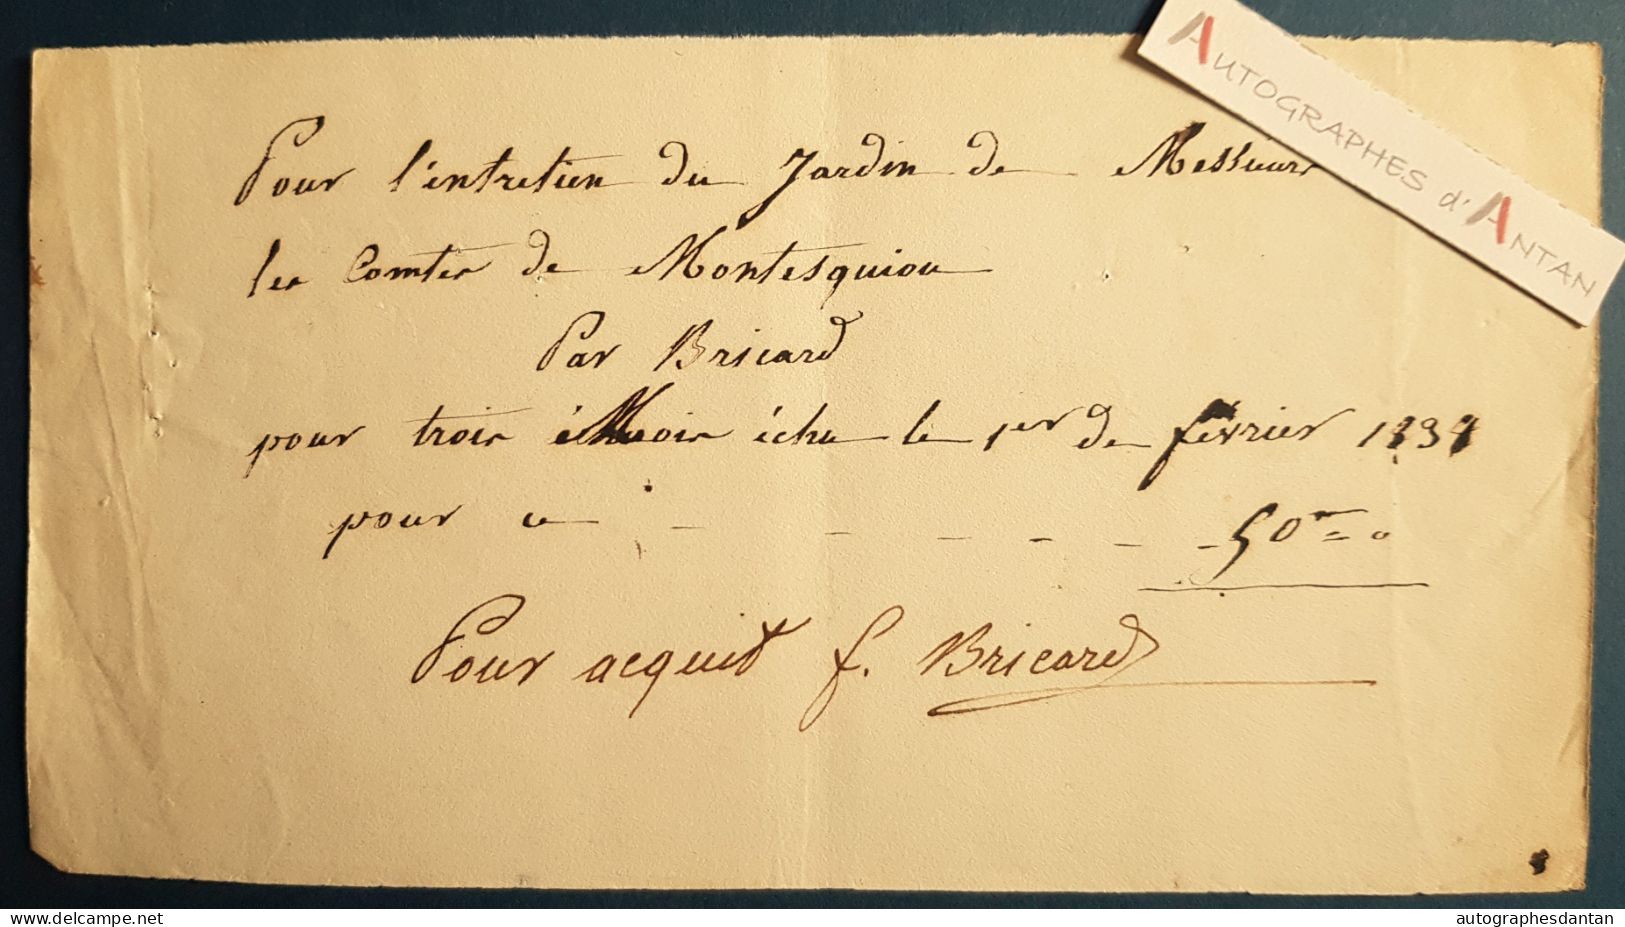 AUTOGRAPHES d'ANTAN
Pour l'entretien du Jardin de Messieurs
les Comtes de Montesquiou
Par Bricard
pour trois Mois échu le 1er de février 1838
pour ce - - - - - - 50 fr = 0
Pour acquit f. Bricard
www.delcampe.net
autographesdantan